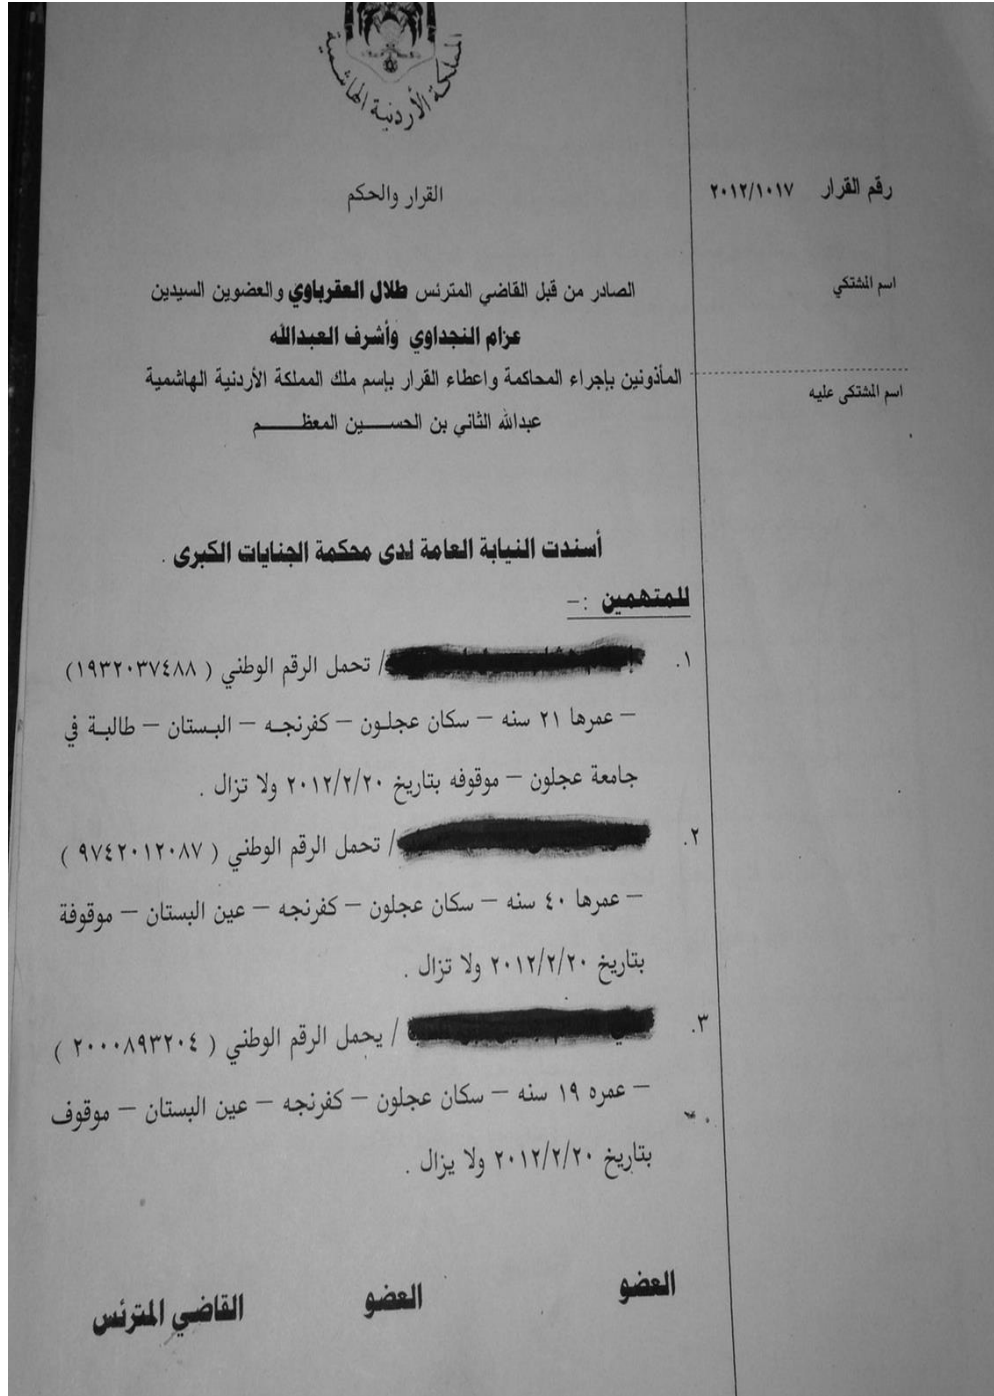 المملكة الأردنية الهاشمية
رقم القرار ٢٠١٢/١٠١٧
القرار والحكم
اسم المشتكي
الصادر من قبل القاضي المترئس طلال العقرباوي والعضوين السيدين
عزام النجداوي وأشرف العبدالله
المأذونين بإجراء المحاكمة واعطاء القرار بإسم ملك المملكة الأردنية الهاشمية
اسم المشتكى عليه
عبدالله الثاني بن الحســـين المعظـــــم
أسندت النيابة العامة لدى محكمة الجنايات الكبرى .
للمتهمين :–
١. / تحمل الرقم الوطني ( ١٩٣٢٠٣٧٤٨٨)
– عمرها ٢١ سنه – سكان عجلـون – كفرنجـه – البـستان – طالبـة في
جامعة عجلون – موقوفه بتاريخ ٢٠١٢/٢/٢٠ ولا تزال .
٢. / تحمل الرقم الوطني ( ٩٧٤٢٠١٢٠٨٧ )
– عمرها ٤٠ سنه – سكان عجلون – كفرنجه – عين البستان – موقوفة
بتاريخ ٢٠١٢/٢/٢٠ ولا تزال .
٣. / يحمل الرقم الوطني ( ٢٠٠٠٨٩٣٢٠٤ )
– عمره ١٩ سنه – سكان عجلون – كفرنجه – عين البستان – موقوف
بتاريخ ٢٠١٢/٢/٢٠ ولا يزال .
العضو العضو القاضي المترئس